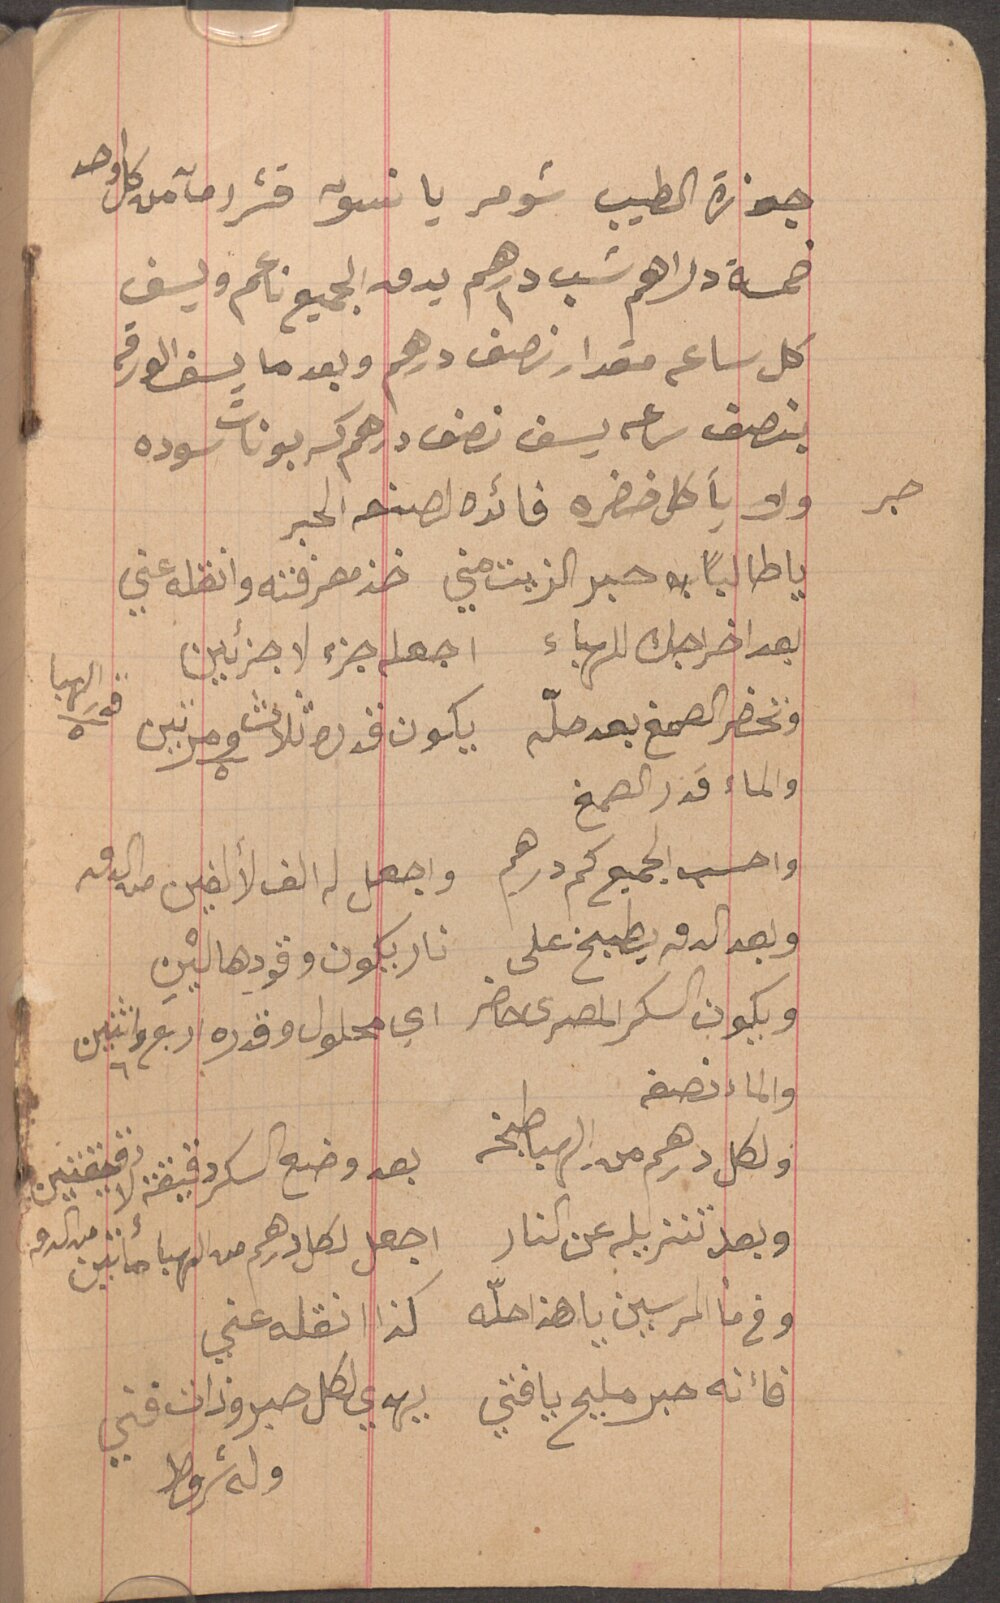 جوزة الطيب شومر يانسون قشر رمان من كل واحد
خمسة دراهم شب درهم يدق الجميع ناعم ويسف
كل ساعه مقدار نصف درهم وبعد ما يسف الورقه
بنصف ساعه يسف نصف درهم كربونات سوده
ولا يأكل خضره فائده لصنعه الحبر
حبر
يا طالبًا حبر الزيت مني خذ معرفته وانقله عني
بعد اخراجك للهباء اجعله جزء لا جزئين
وتحضر الصمغ بعد حلّه يكون قدره ثلاث ومرتين
قدر الهبا ٥
والماء قدر الصمغ
واحسب الجميع كم درهم واجعل له الف لألفين من الدق
وبعد الدق يطبخ على نار يكون وقودها ليْنِ
ويكون السكر المصري حاضر اي محلول وقدره اربع واثنين
٦
والماء نصفه
ولكل درهم من الهبا طبخه بعد وضع السكر دقيقة لا دقيقتين
وبعد تنزيله عن النار اجعل لكل درهم من الهبا مأتين من الدق
وفي ماء المرسين يا هذا حلّه كذا انقله عني
فأنه حبر مليح يا فتي يهوي لكل حبر وذات فتي
وله شروط